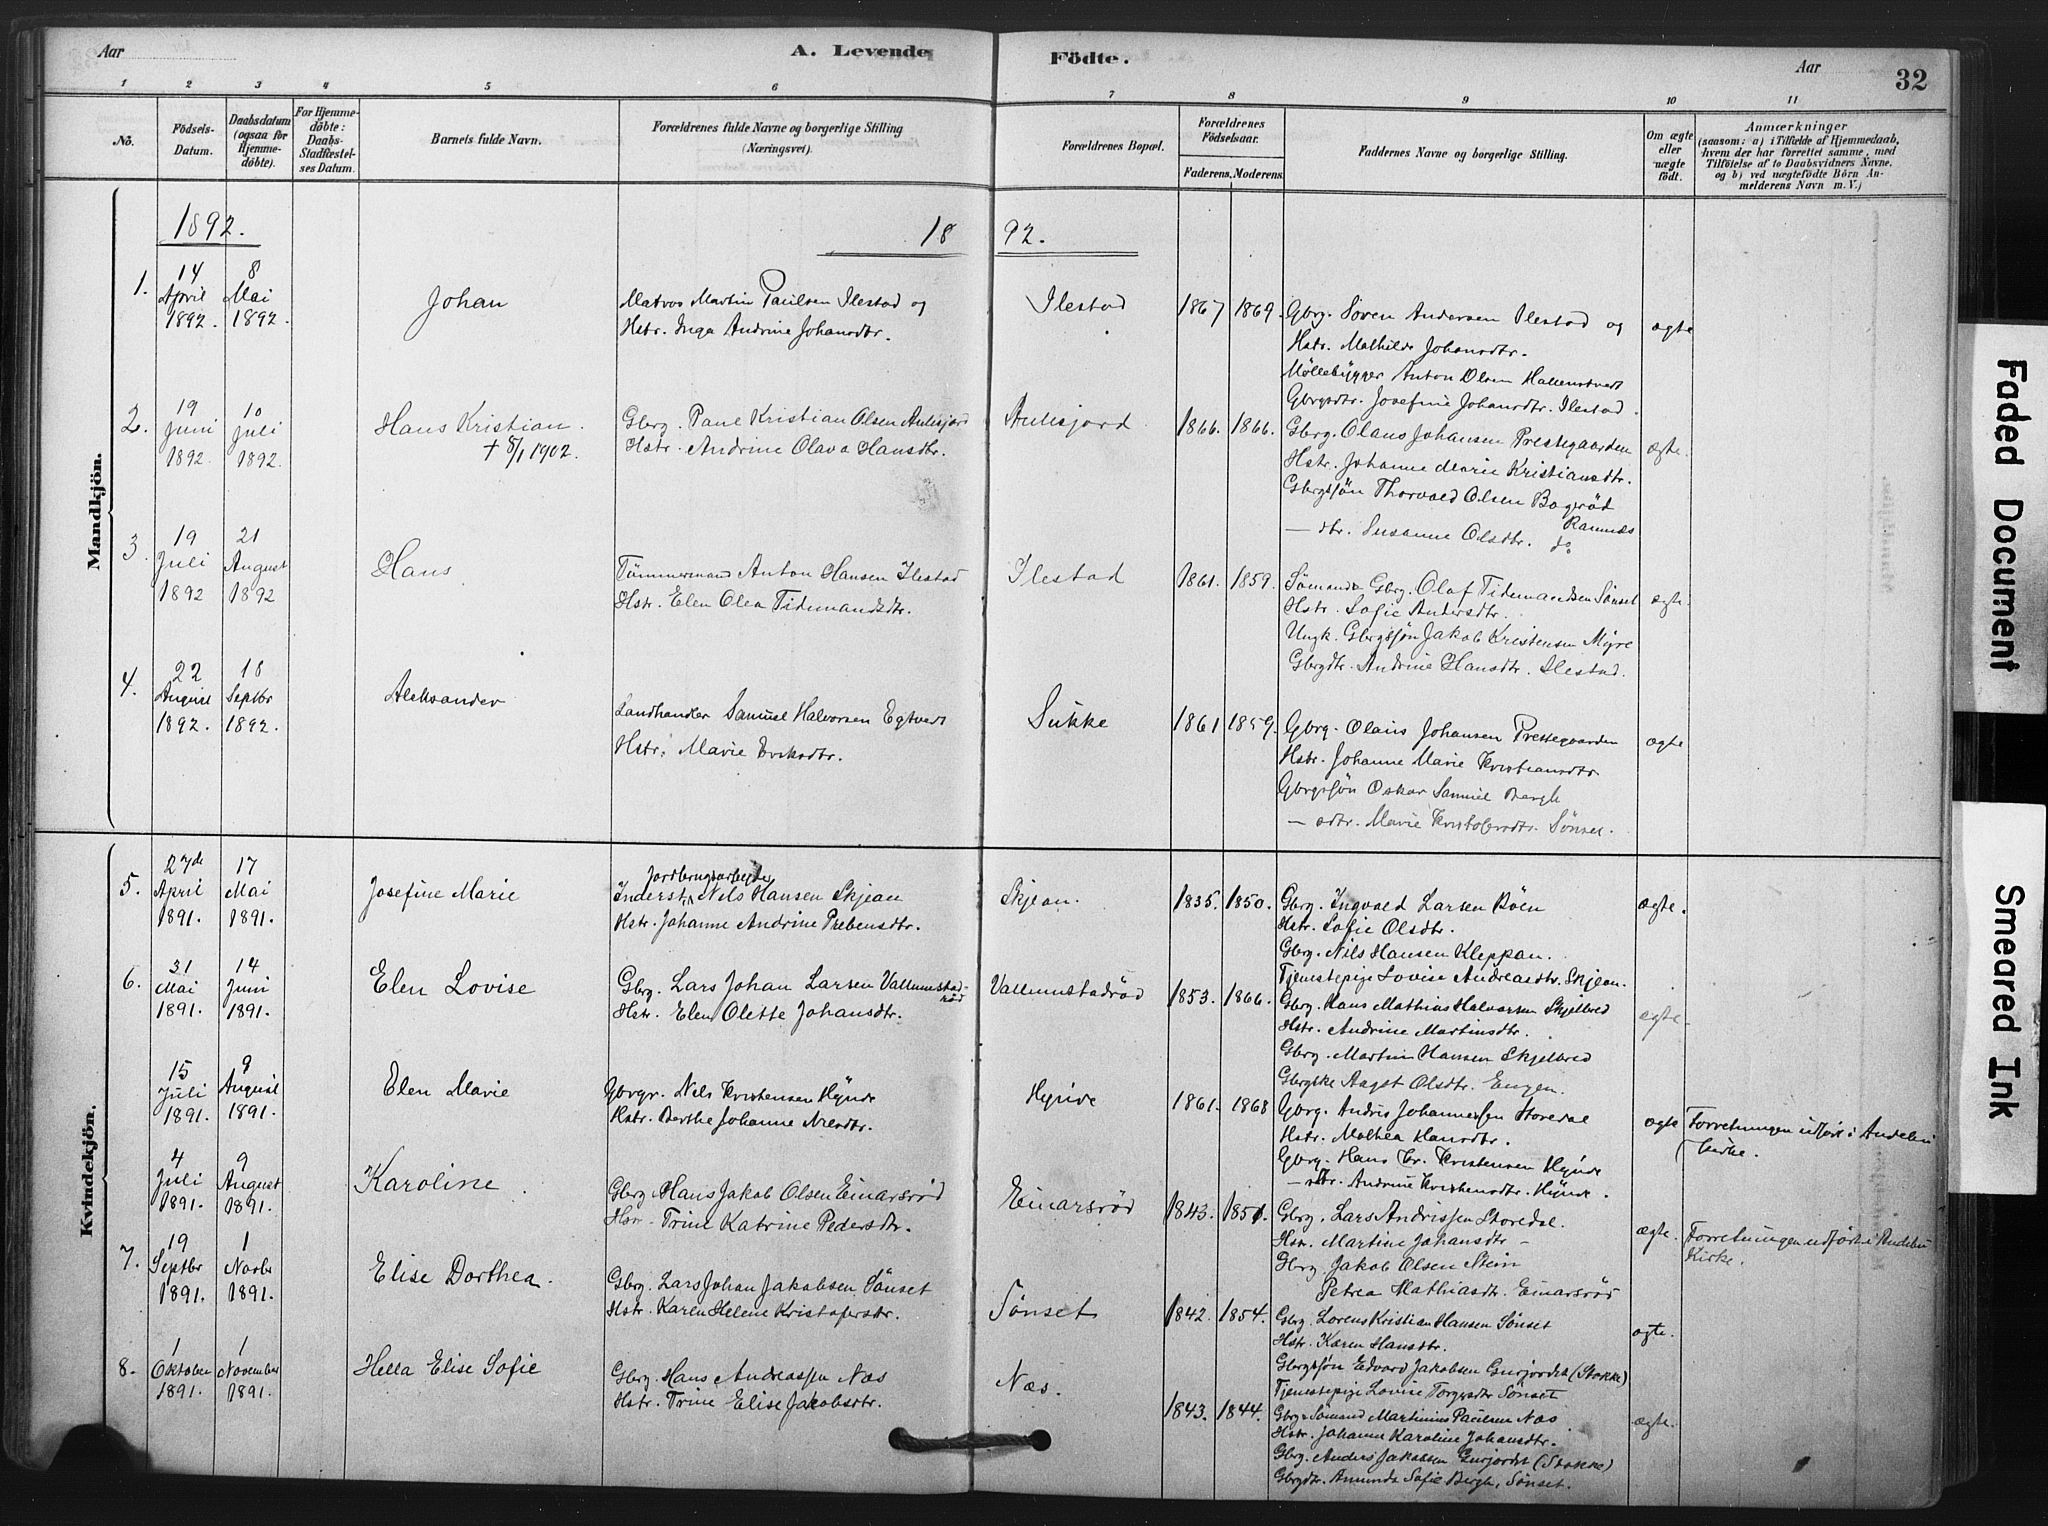 Aar
A. Levende
Födte.
Aar
32
1 2 3 4 5 6 7 8 9 10 11
No.
Födsels-
Datum.
Daabsdatum
(ogsaa for
Hjemme-
döbte).
For Hjemme-
döbte:
Daabs-
Stadfæstel-
ses Datum.
Barnets fulde Navn.
Forældrenes fulde Navne og borgerlige Stilling
(Næringsvei).
Forældrenes Bopæl.
Forældrenes
Födselsaar.
Faderens. Moderens.
Faddernes Navne og borgerlige Stilling.
Om ægte
eller
uægte
födt.
Anmærkninger
(saasom: a) i Tilfælde af Hjemmedaab,
hvem der har forrettet samme, med
Tilföielse af to Daabsvidners Navne.
og b) ved uægtefödte Börn An-
melderens Navn m. V.)
Mandkjön.
1892.
18 92.
1.
14
April
1892.
8
Mai
1892.
Johan
Matros Martin Paulsen Ilestad og
Hstr. Inga Andrine Johansdtr.
Ilestad
1867 1869.
Gbrg. Søren Andersen Ilestad og
Hstr. Mathilde Johansdtr.
Møllebygger Anton Olsen Hallenstvedt
Gbrgsdtr. Josefine Johansdtr. Ilestad.
ægte
2.
19
Juni
1892.
10
Juli
1892.
Hans Kristian.
† 8/1 1902.
Gbrg. Paul Kristian Olsen Aulesjord
Hstr. Andrine Olava Hansdtr.
Aulesjord
1866. 1866.
Gbrg. Olaus Johansen Prestegaarden
Hstr. Johanne Marie Kristiansdtr.
Gbrgsøn Thorvald Olsen Bogerød
Ramnes
— dtr. Susanne Olsdtr. do
ægte.
3.
19
Juli
1892
21
August
1892
Hans
Tømmermand Anton Hansen Ilestad
Hstr. Elen Olea Tidemandsdtr.
Ilestad
1861. 1859.
Sømand & Gbrg. Olaf Tidemandsen Sønset
Hstr. Sofie Andersdtr.
Ungk. Gbrgsøn Jakob Kristensen Myre
Gbrgdtr. Andrine Hansdtr. Ilestad.
ægte.
4.
22
August
1892.
18
Septbr
1892.
Aleksander
Landhandler Samuel Halvorsen Egtvedt
Hstr. Marie Eriksdtr.
Sukke
1861 1859.
Gbrg. Olaus Johansen Prestegaarden
Hstr. Johanne Marie Kristiansdtr
Gbrgsøn Oskar Samuel Bergh
— sdtr. Marie Kristofersdtr. Sønset.
ægte
Kvindekjön.
5.
27de
April
1891.
17
Mai
1891.
Josefine Marie
Jordbrugsarbejder
Inderst, Nils Hansen Skjean
Hstr. Johanne Andrine Prebensdtr.
Skjean.
1835. 1850.
Gbrg. Ingvald Larsen Bøen
Hstr. Sofie Olsdtr.
Gbrg. Nils Hansen Kleppan.
Tjenestepige Lovise Andreasdtr. Skjean.
ægte.
6.
31
Mai
1891.
14
Juni
1891.
Elen Lovise
Gbrg. Lars Johan Larsen Vallumstad-
rød
Hstr. Elen Olette Johansdtr.
Vallumstadrød
1853. 1866.
Gbrg. Hans Mathias Halvorsen Skjelbred
Hstr. Andrine Martinsdtr.
Gbrg. Martin Hansen Skjelbred
Aagot Olsdtr. Engen.
ægte.
15
Juli
1891.
9
August
1891.
Elen Marie
Gbrgr. Nils Kristensen Hynde
Hstr. Berthe Johanne Nilsdtr.
Hynde
1861. 1868
Gbrg. Andris Johannessen Storedal
Hstr. Mathea Hansdtr.
Gbrg. Hans Kr. Kristensen Hynde
— dtr. Andrine Kristensdtr. Hynde.
ægte
Forretningen udført i Andebu
Kirke.
4
Juli
1891.
9
August
1891.
Karoline.
Gbrg. Hans Jakob Olsen Einarsrød
Hstr. Trine Katrine Pedersdtr.
Einarsrød
1843. 1851.
Gbrg. Lars Andrissen Storedal
Hstr. Martine Johansdtr —
Gbrg. Jakob Olsen Stein
Petrea Mathiasdtr. Einarsrød
ægte.
Forretningen udført i Andebu
Kirke.
7.
19
Septbr
1891.
1
Novbr
1891.
Elise Dorthea.
Gbrg. Lars Johan Jakobsen Sønset
Hstr. Karen Helene Kristofersdtr.
Sønset
1842. 1854.
Gbrg. Lorens Kristian Hansen Sønset
Hstr. Karen Hansdtr.
Gbrgsøn Edvard Jakobsen Gurjordet (Stokke)
Tjenestepige Lovise Torgersdtr Sønset
ægte.
8.
1
Oktober
1891.
1
November
1891.
Hella Elise Sofie
Gbrg. Hans Andreassen Næs
Hstr. Trine Elise Jakobsdtr.
Næs.
1843. 1844.
Gbrg & Sømand Martinius Paulsen Næs
Hstr. Johanne Karoline Johansdtr.
Gbrg. Anders Jakobsen Gurjordet (Stokke)
Gbrgdtr. Amunda Sofie Bergh, Sønset.
ægte.
Faded Document
Smeared Ink